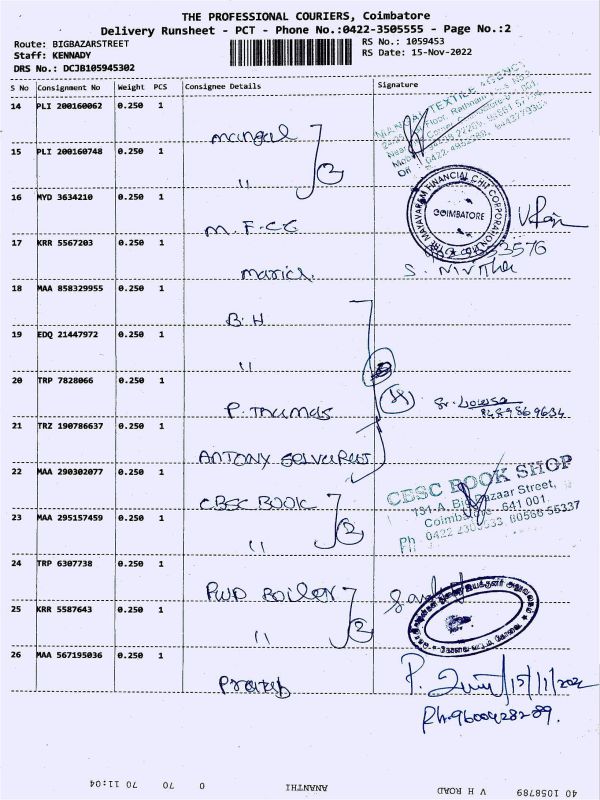 THE PROFESSIONAL COURIERS, Coimbatore
Delivery Runsheet - PCT - Phone No.:0422-3505555 - Page No.:2
Route: BIGBAZARSTREET
Staff: KENNADY
DRS No.: DCJB105945302
RS No.: 1059453
RS Date: 15-Nov-2022
S No Consignment No Weight PCS Consignee Details Signature
14 PLI 200160062 0.250 1
Mangal
15 PLI 200160748 0.250 1
"
2
16 MYD 3634210 0.250 1
M.F.CC
THE MAYAVARAM FINANCIAL CHIT CORPORATION
COIMBATORE
17 KRR 5567203 0.250 1
18 MAA 858329955 0.250 1
B.H
19 EDQ 21447972 0.250 1
"
20 TRP 7828066 0.250 1
P. Thumas
Sr. Lowsa
8489869634
21 TRZ 190786637 0.250 1
ANTONY SELVARAJ
22 MAA 290302077 0.250 1
CBSC BOOK
CBSC BOOK SHOP
131-A, Big Bazaar Street,
Coimbatore - 641 001.
23 MAA 295157459 0.250 1
"
2
24 TRP 6307738 0.250 1
PWD BOILER
25 KRR 5587643 0.250 1
"
2
26 MAA 567195036 0.250 1
Pratap
15/11/202
Ph.9600428289.
40 1058789 V H ROAD ANANTHI 0 70 70 11:04